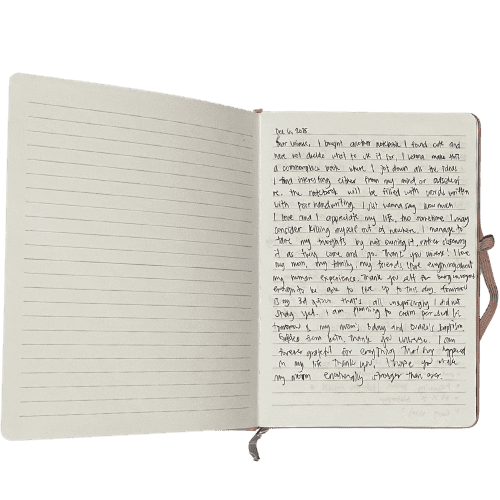 Dec 6, 2025
Dear universe, I bought another notebook I found cute and
have not decide what to use it for. I wanna make this
a commonplace book where I jot down all the ideas
I find interesting either from my mind or outside of
me. the notebook will be filled with words written
with poor handwriting. I just wanna say how much
I love and I appreciate my life, tho sometime I may
consider killing myself out of nowhere. I manage to
tame my thoughts by not owning it, rather observing
it as they come and go. Thank you universe! I love
my mom, my family, my friends, love everything about
my human experience. Thank you self for being courageous
enough to be able to live up to this day. Tomorrow
is my 3d quizz that's all unsurprisingly I did not
study yet. I am planning to
tomorrow is my mom's bday and baptism.
thank you universe. I am
forever grateful for everything that has happened
in my life. Thank you, I hope you
my emotionally stronger than ever.